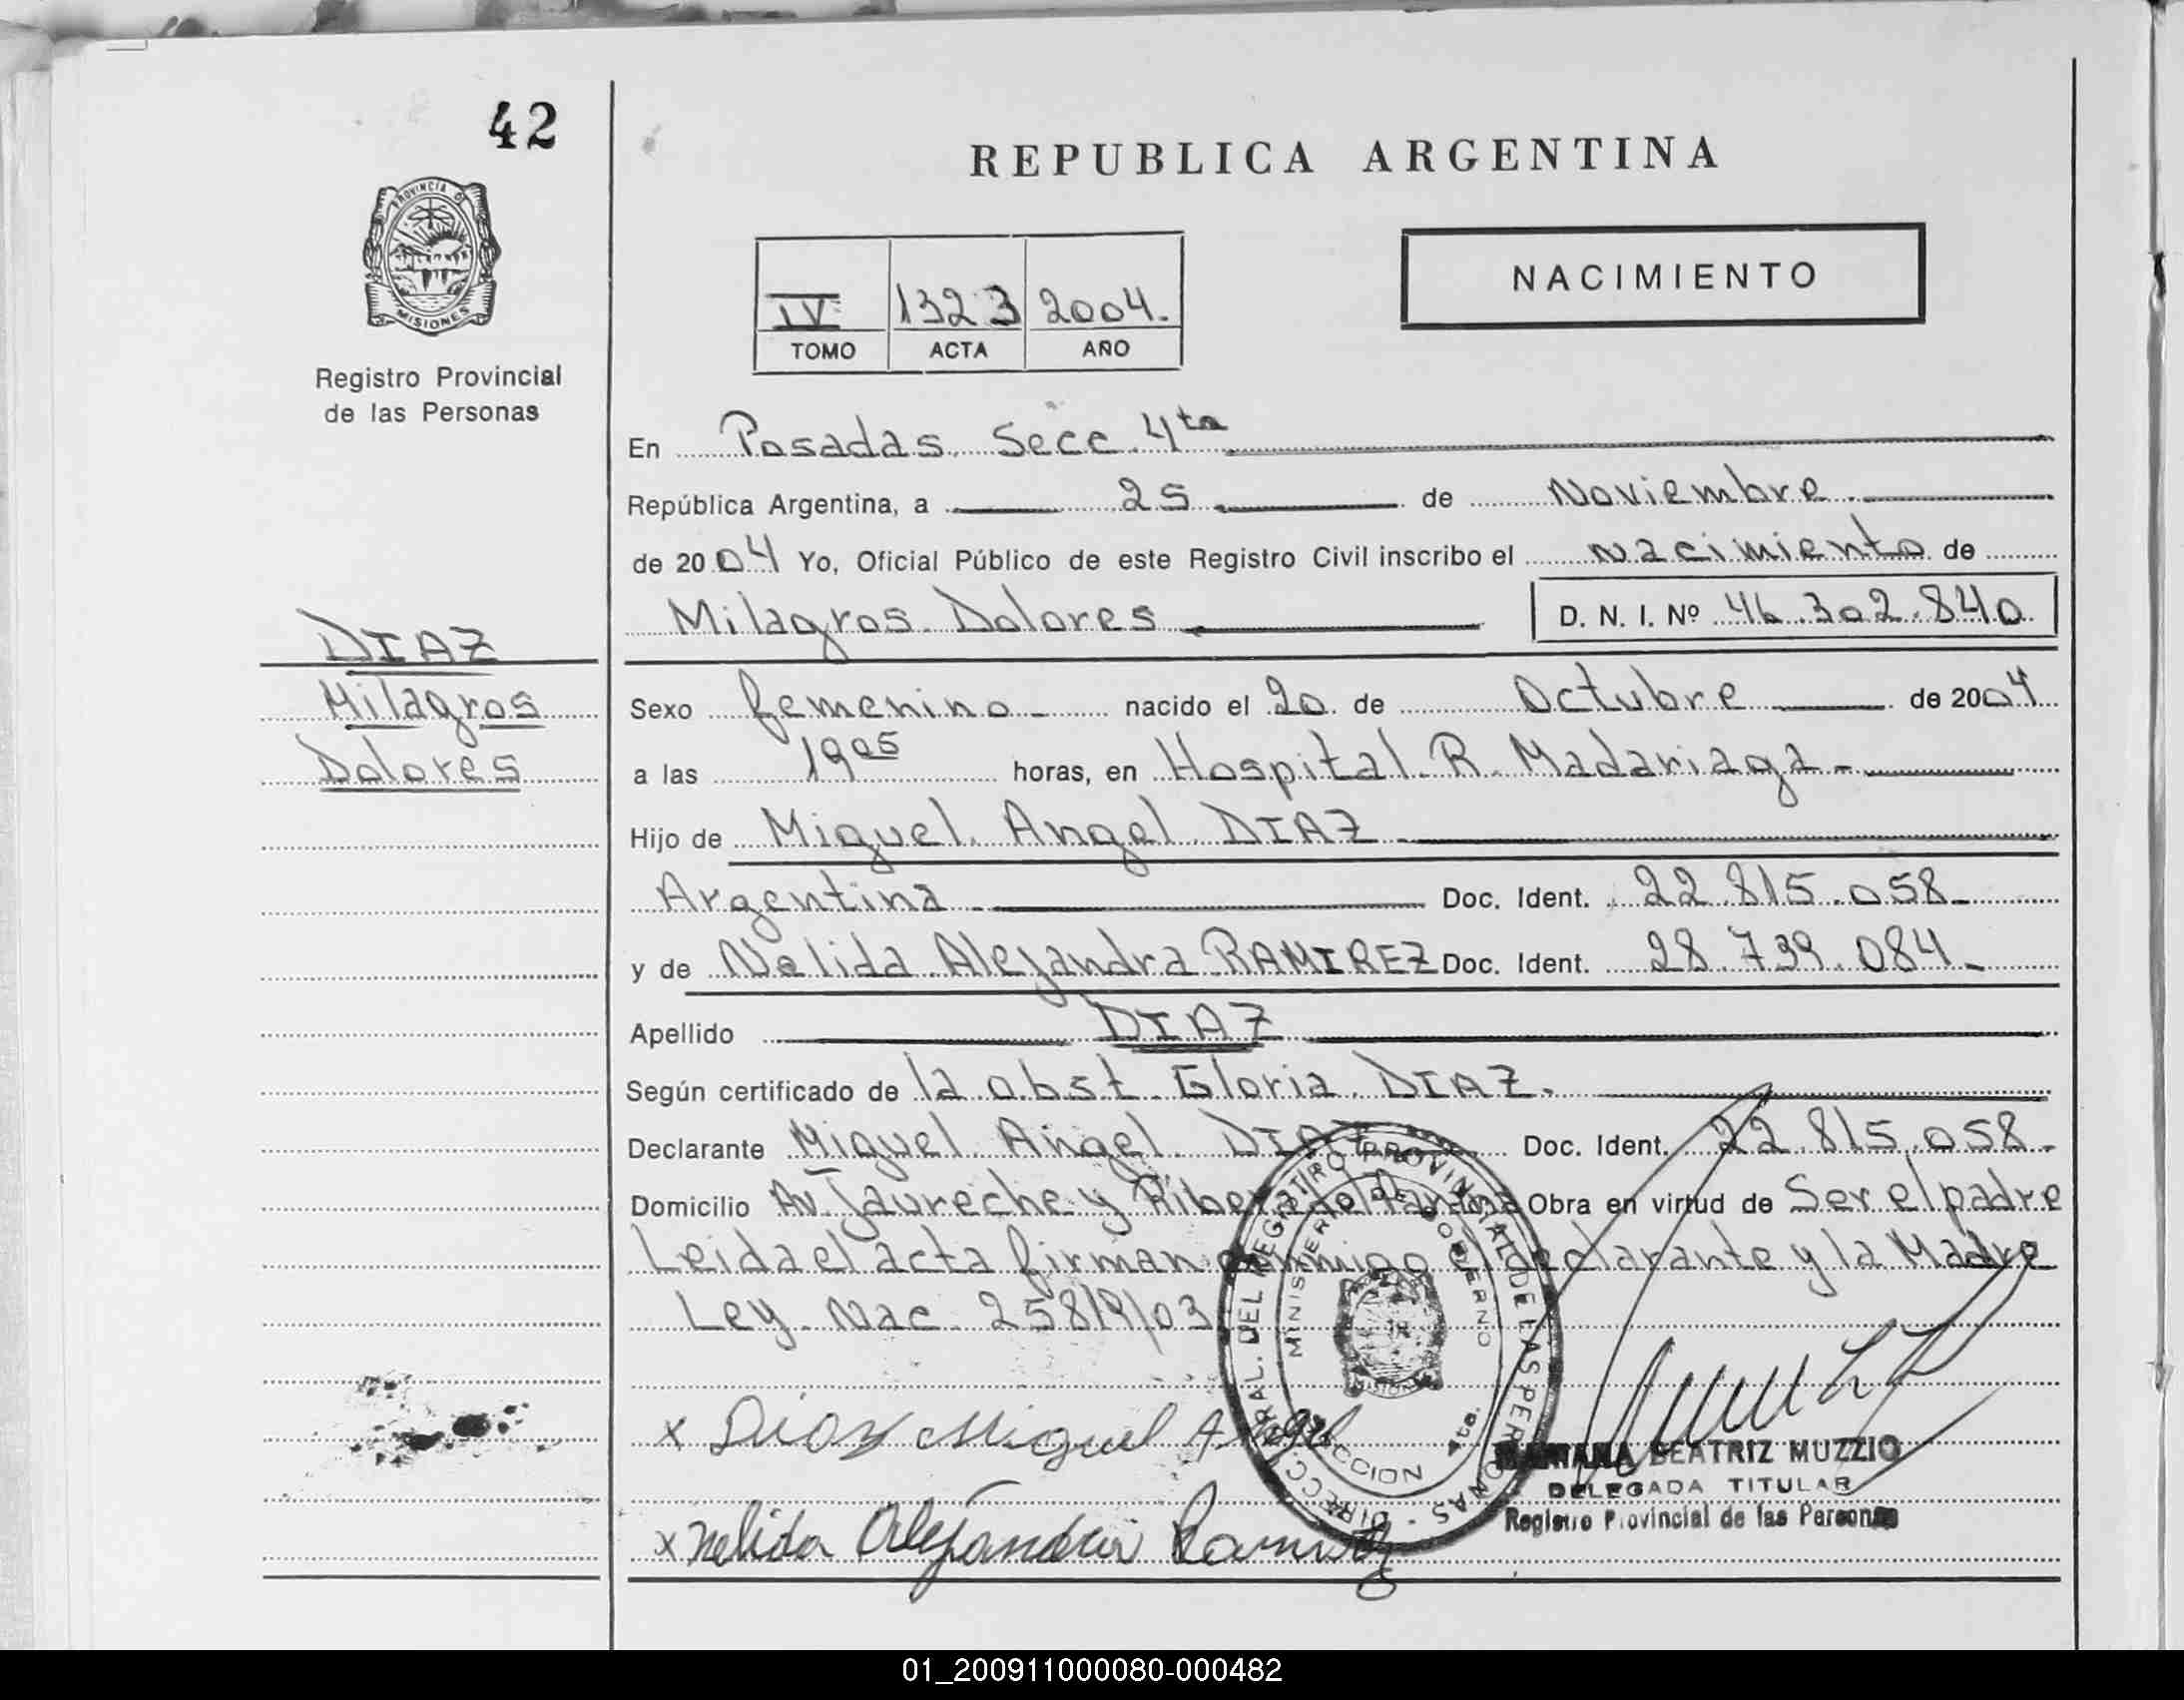 42
REPUBLICA ARGENTINA
PROVINCIA DE
MISIONES
Registro Provincial
de las Personas
NACIMIENTO
IV 1323 2004.
TOMO ACTA AÑO
En Posadas Secc 4ta
República Argentina, a 25 de Noviembre
de 2004 Yo, Oficial Público de este Registro Civil inscribo el nacimiento de
Milagros Dolores D. N. I. Nº 46.302.840
DIAZ
Milagros
Dolores
Sexo femenino nacido el 20 de Octubre de 2004
a las 19 05 horas, en Hospital R. Madariaga-
Hijo de Miguel Angel DIAZ
Argentina Doc. Ident. 22.815.058-
y de Nelida Alejandra RAMIREZ Doc. Ident. 28.739.084-
Apellido DIAZ
Según certificado de la obst. Gloria DIAZ.
Declarante Miguel Angel DIAZ Doc. Ident. 22.815.058-
Domicilio Av. Jaureche y Ribera del Parana Obra en virtud de Ser el padre
Leida el acta firman conmigo el declarante y la Madre
Ley Nac. 25819/03
x Diaz Miguel Angel
x Nelida Alejandra Ramirez
DIRECC. GRAL. DEL REGISTRO PROVINCIAL DE LAS PERSONAS
MINISTERIO DE GOBIERNO
MISIONES
BEATRIZ MUZZIO
DELEGADA TITULAR
Registro Provincial de las Personas
01_200911000080-000482